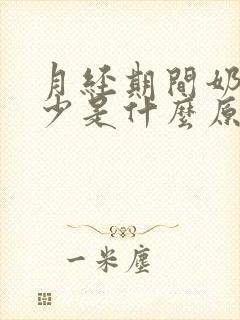 月経期間奶
少是什麼原
一米塵